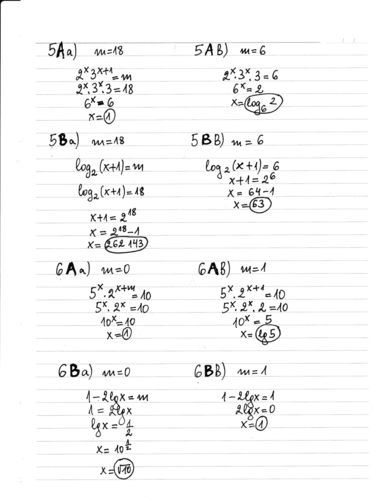 5Aa) m=18
2^x 3^(x+1) = m
2^x · 3^x · 3 = 18
6^x = 6
x = 1
5AB) m = 6
2^x · 3^x · 3 = 6
6^x = 2
x = log₆ 2
5Ba) m=18
log₂(x+1) = m
log₂(x+1) = 18
x+1 = 2^18
x = 2^18 − 1
x = 262 143
5BB) m = 6
log₂(x+1) = 6
x+1 = 2^6
x = 64 − 1
x = 63
6Aa) m=0
5^x · 2^(x+m) = 10
5^x · 2^x = 10
10^x = 10
x = 1
6AB) m=1
5^x · 2^(x+1) = 10
5^x · 2^x · 2 = 10
10^x = 5
x = lg 5
6Ba) m=0
1 − 2lgx = m
1 = 2lgx
lgx = 1/2
x = 10^(1/2)
x = √10
6BB) m=1
1 − 2lgx = 1
2lgx = 0
x = 1